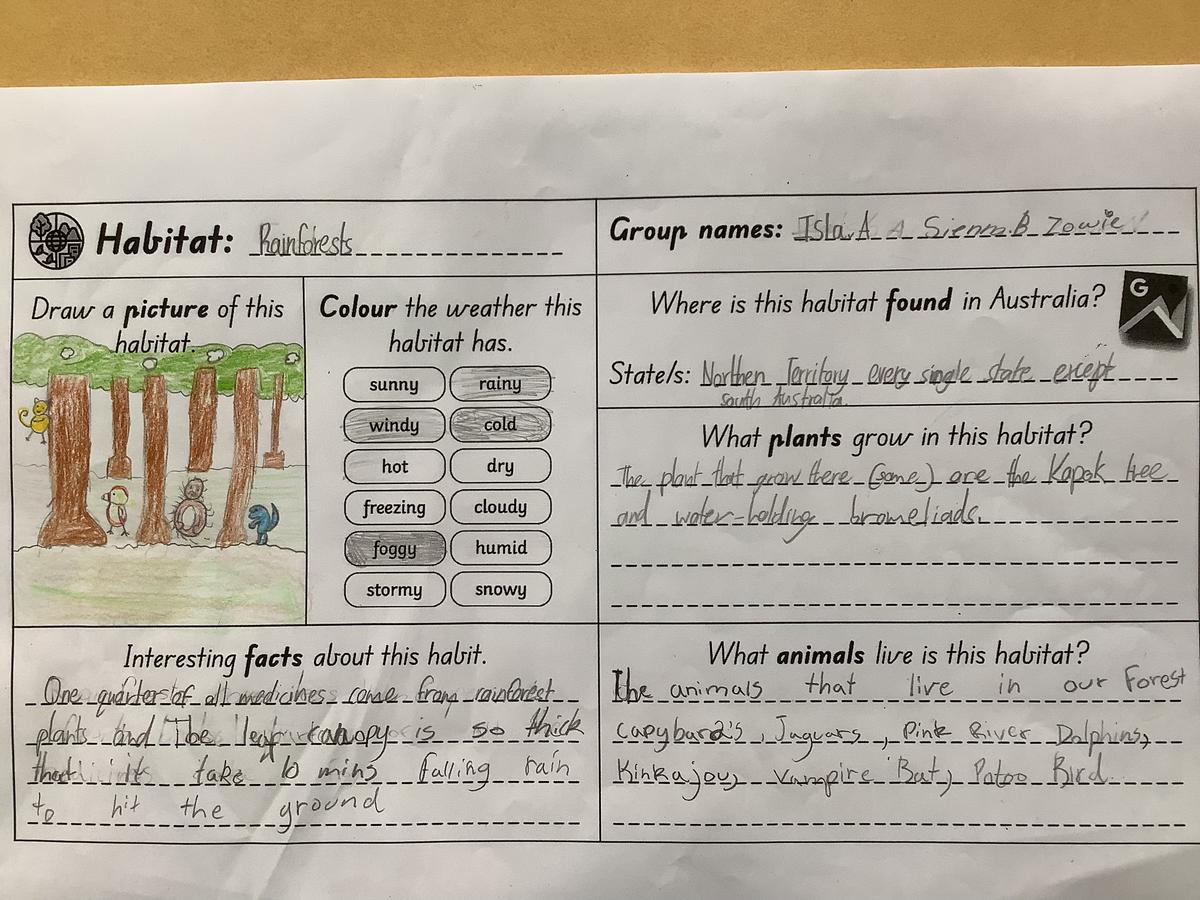 Habitat: Rainforests
Group names: Isla.A Sienna.B Zowie
Draw a picture of this
habitat.
Colour the weather this
habitat has.
sunny
rainy
windy
cold
hot
dry
freezing
cloudy
foggy
humid
stormy
snowy
Where is this habitat found in Australia?
G
State/s: Northen Territory every single state except
south Australia.
What plants grow in this habitat?
The plant that grow there (some) are the Kapok tree
and water-holding bromeliads.
Interesting facts about this habit.
One quarters of all medicines come from rainforest
plants and The leafy canopy is so thick
that it take 10 mins falling rain
to hit the ground
What animals live is this habitat?
The animals that live in our Forest
capybara's, Jaguars, Pink River Dolphins,
Kinkajou, Vampire Bat, Potoo Bird.